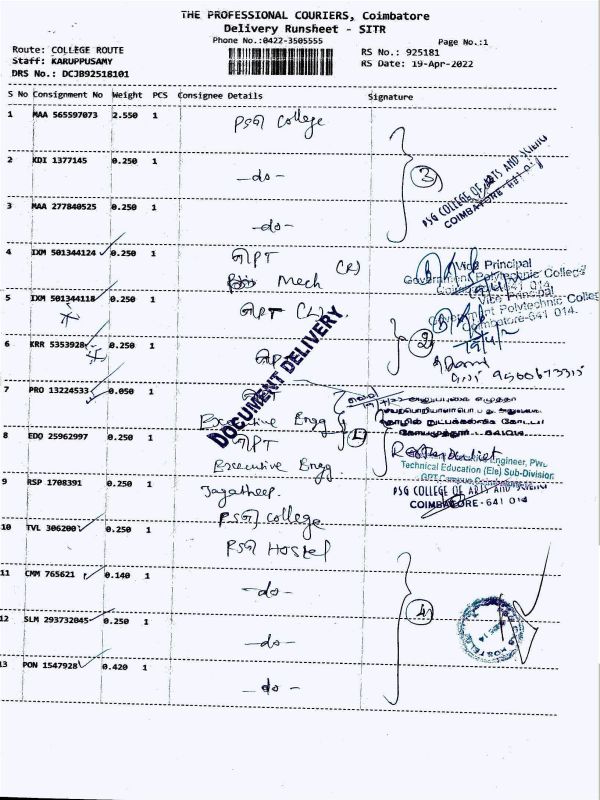 THE PROFESSIONAL COURIERS, Coimbatore
Delivery Runsheet - SITR
Phone No.:0422-3505555
Page No.:1
Route: COLLEGE ROUTE
RS No.: 925181
Staff: KARUPPUSAMY
RS Date: 19-Apr-2022
DRS No.: DCJB92518101
S No Consignment No Weight PCS Consignee Details Signature
1 MAA 565597073 2.550 1 PSG College
2 KDI 1377145 0.250 1 -do-
3
PSG COLLEGE OF ARTS AND SCIENCE
COIMBATORE - 641 014
3 MAA 277840525 0.250 1 -do-
4 IXM 501344124 0.250 1 GPT (R)
Mech
Vice Principal
Government Polytechnic College
641 014.
5 IXM 501344118 0.250 1 GPT (L)
Vice Principal
Government Polytechnic College
Coimbatore-641 014.
6 KRR 5353928 0.250 1 GPT
2
DOCUMENT DELIVERY
7 PRO 13224533 0.050 1
Executive Engg
8 EDQ 25962997 0.250 1 GPT
Executive Engg
Engineer, PWD
Technical Education (Ele) Sub-Division
9 RSP 1708391 0.250 1 Jagatheep.
PSG College
PSG COLLEGE OF ARTS AND SCIENCE
COIMBATORE - 641 014
10 TVL 306200 0.250 1
PSG Hostel
11 CMM 765621 0.140 1 -do-
4
12 SLM 293732045 0.250 1 -do-
13 PON 1547928 0.420 1 -do-